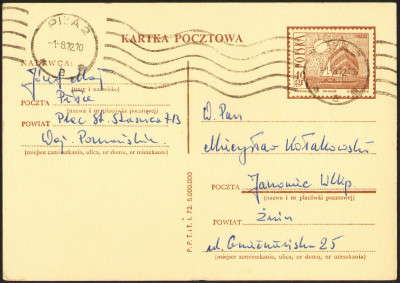 PIŁA 2
-1-8.12.10
KARTKA POCZTOWA
POLSKA
40
GR
NADAWCA:
Józef Maj
(imię i nazwisko)
Piła
POCZTA
(nazwa i nr placówki pocztowej)
Plac St. Staszica 7/3
POWIAT
Woj. Poznańskie
(miejsce zamieszkania, ulica, nr domu, nr mieszkania)
P.P.T.iT. I. 72. 5.000.000
W. Pan
Mieczysław Kołakowski
POCZTA Janowiec Wlkp
(nazwa i nr placówki pocztowej)
Żnin
POWIAT
ul. Gnieźnieńska 25
(miejsce zamieszkania, ulica, nr domu, nr mieszkania)